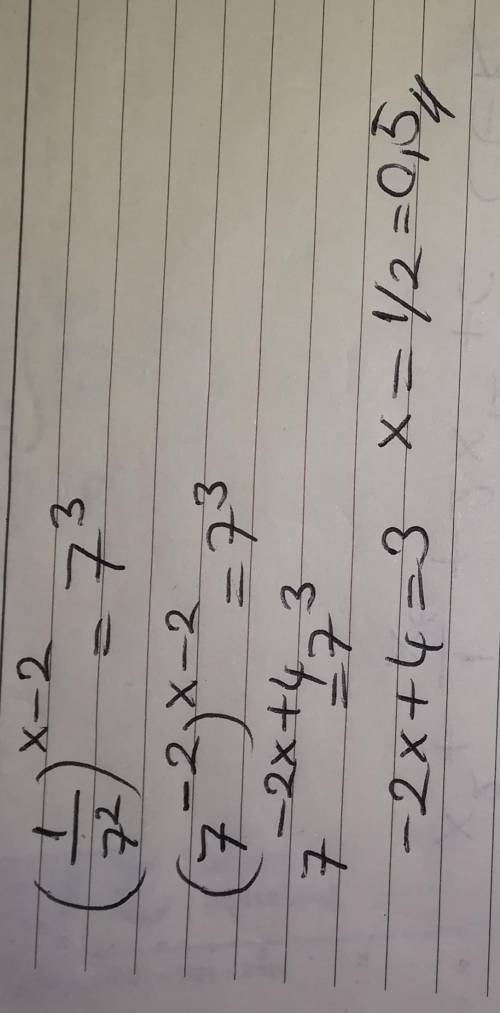 (1/7²)^(x-2) = 7³
(7⁻²)^(x-2) = 7³
7^(-2x+4) = 7³
-2x+4=3 x = 1/2 = 0,5